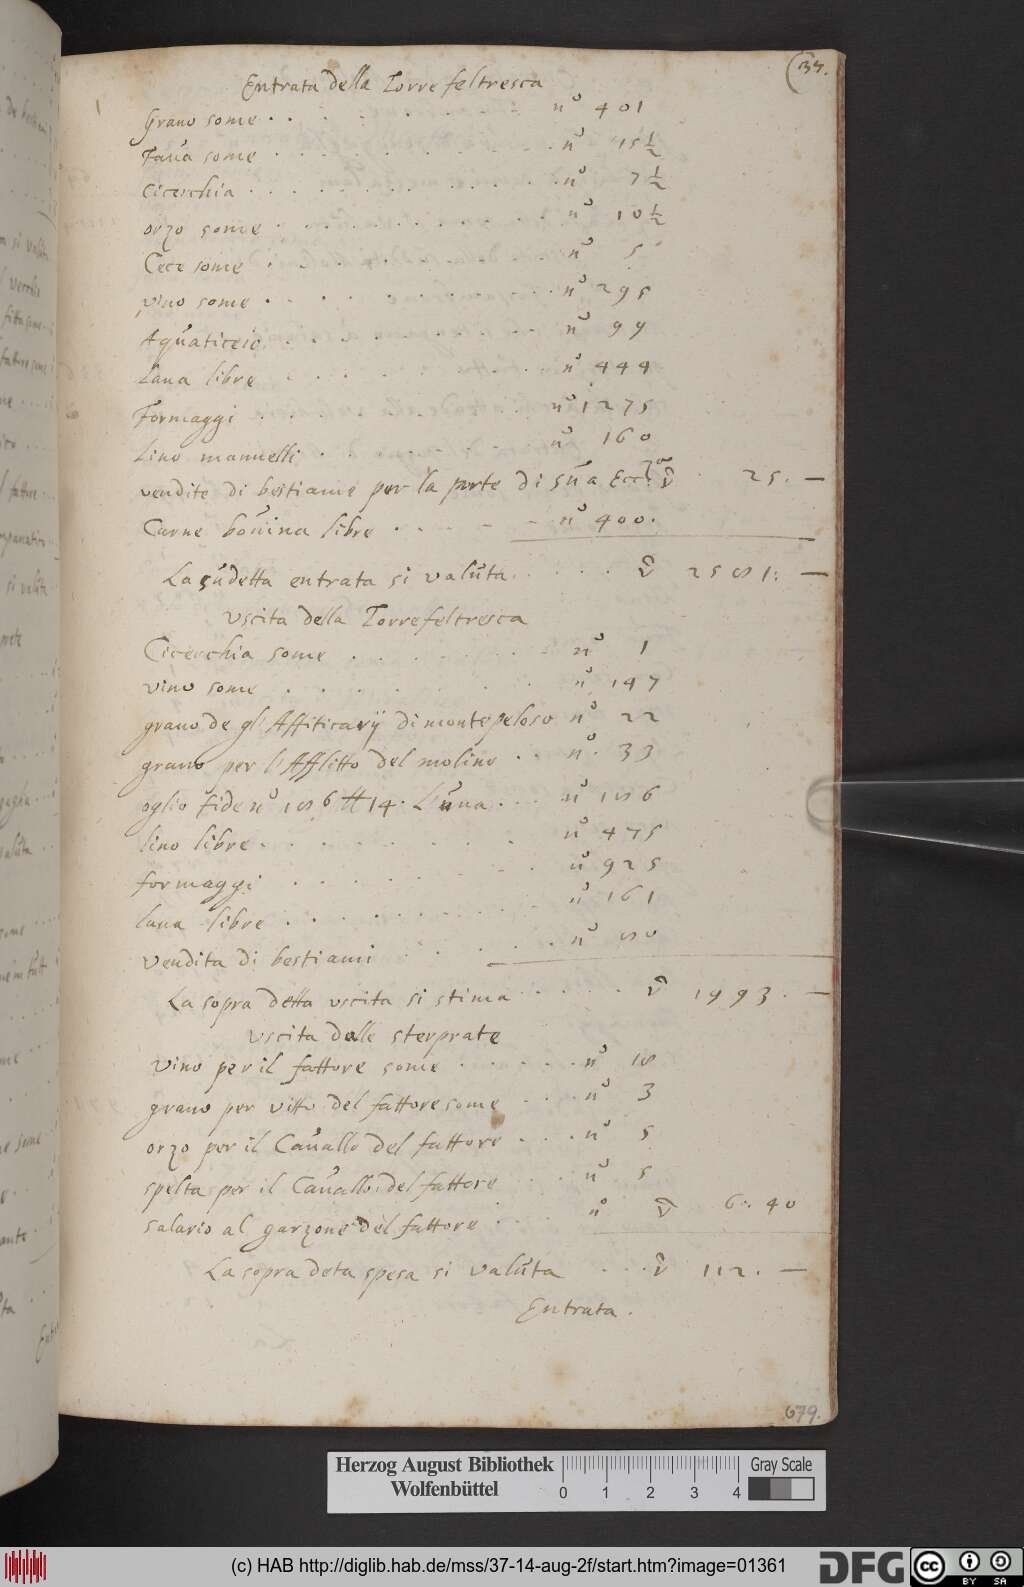 (37.
Entrata della Torre feltresca
Grano some . . . . . . nº 401
Faua some . . . . . . nº 15 1/2
Cicerchia . . . . . . nº 7 1/2
orzo some . . . . . . nº 10 1/2
Cece some . . . . . . nº 5
vino some . . . . . . nº 295
Aquaticcio . . . . . . nº 99
Lana libre . . . . . . nº 444
Formaggi . . . . . . nº 1275
Lino mannelli . . . . . . nº 160
vendite di bestiame per la parte di sua Ecc.ᶻᵃ ▽ 25. —
Carne bouina libre . . . . nº 400.
La sudetta entrata si valuta . . . . ▽ 2581: —
vscita della Torrefeltresca
Cicerchia some . . . . . nº 1
vino some . . . . . nº 147
grano de gl' Affiticarij di montepeloso nº 22
grano per l'Afflitto del molino . . nº. 33
oglio fide nº 186 ♯14. L'una . . . nº 186
lino libre . . . . . . nº 475
formaggi . . . . . . nº 925
lana libre . . . . . . nº 161
vendita di bestiami . . . . nº 80
La sopra detta vscita si stima . . . . ▽ 1993. —
vscita delle sterprate
vino per il fattore some . . . . . nº 18
grano per vitto del fattore some . . . nº 3
orzo per il Cauallo del fattore . . . nº 5
spelta per il Cauallo del fattore . . . nº 5
salario al garzone del fattore . . . nº ▽ 6:. 40
La sopra deta spesa si valuta . . . ▽ 112. —
Entrata.
679.
Herzog August Bibliothek
Wolfenbüttel
0 1 2 3 4
Gray Scale
(c) HAB http://diglib.hab.de/mss/37-14-aug-2f/start.htm?image=01361
DFG
cc BY SA